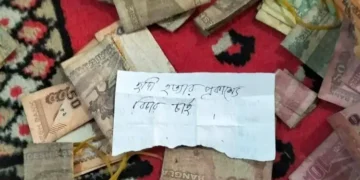 হাদি হত্যার প্রকাশ্যে
বিচার চাই